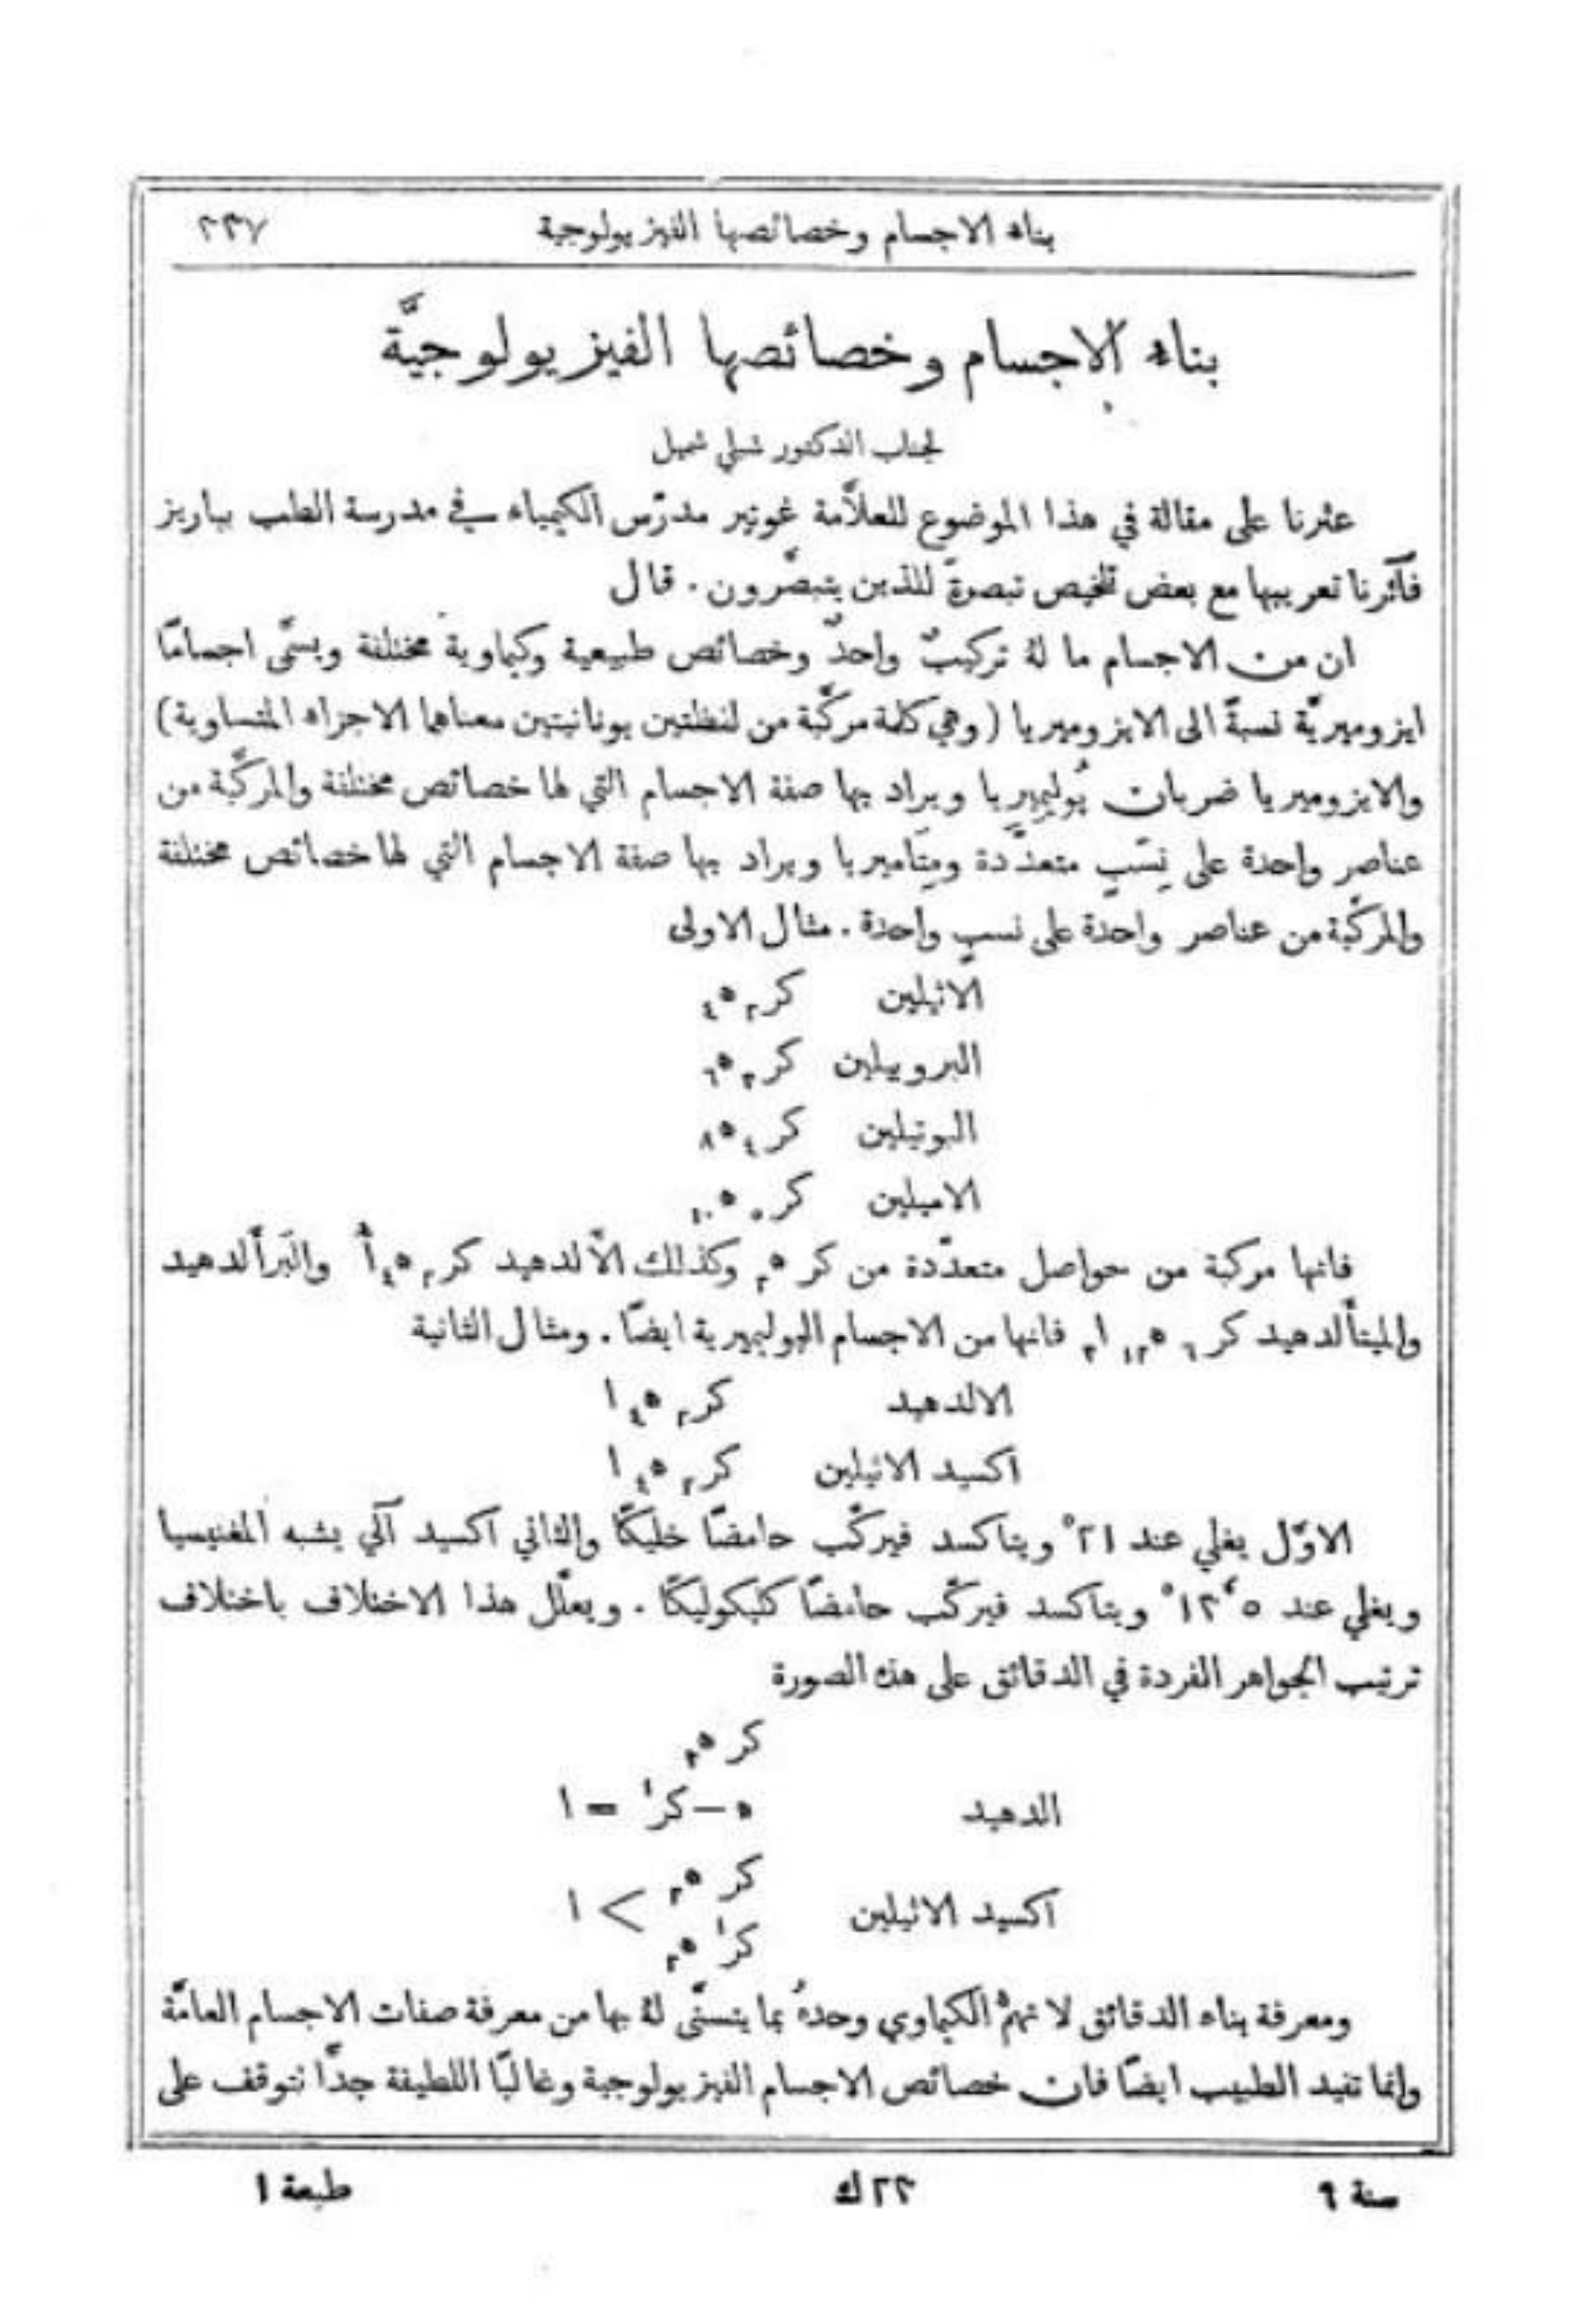 بناء الاجسام وخصائصها الفيزيولوجية ٢٣٧
بناء الاجسام وخصائصها الفيزيولوجيَّة
لجناب الدكتور شبلي شميل
عثرنا على مقالة في هذا الموضوع للعلاَّمة غوتير مدرّس الكيمياء في مدرسة الطب بباريز
فآثرنا تعريبها مع بعض تلخيص تبصرةً للذين يتبصَّرون . قال
ان من الاجسام ما لهُ تركيبٌ واحدٌ وخصائص طبيعية وكيماوية مختلفة ويسمَّى اجسامًا
ايزوميريَّة نسبةً الى الايزوميريا (وهي كلمة مركَّبة من لفظتين يونانيتين معناهما الاجزاء المتساوية)
والايزوميريا ضربان بُوليمِيريا ويراد بها صفة الاجسام التي لها خصائص مختلفة والمركَّبة من
عناصر واحدة على نِسَبٍ متعدّدة ومِتَاميريا ويراد بها صفة الاجسام التي لها خصائص مختلفة
والمركَّبة من عناصر واحدة على نسبٍ واحدة . مثال الاولى
الاثيلين كر٢ ه٤
البروبيلين كر٣ ه٦
البوتيلين كر٤ ه٨
الاميلين كر٥ ه١٠
فانها مركبة من حواصل متعدّدة من كر ه٢ وكذلك الألدهيد كر٢ ه٤ أ والبَرألدهيد
والميتألدهيد كر٦ ه١٢ ا٣ فانها من الاجسام البوليميرية ايضًا . ومثال الثانية
الالدهيد كر٢ ه٤ ا
اكسيد الاثيلين كر٢ ه٤ ا
الاوَّل يغلي عند ٢١° ويتاكسد فيركّب حامضًا خليكًا والثاني اكسيد آلي يشبه المغنيسيا
ويغلي عند ١٢٬٥° ويتاكسد فيركّب حامضًا كليكوليكًا . ويعلَّل هذا الاختلاف باختلاف
ترتيب الجواهر الفردة في الدقائق على هذه الصورة
كر ه٣
الدهيد ه–كرَ = ا
كر ه٢
اكسيد الاثيلين > ا
كرَ ه٢
ومعرفة بناء الدقائق لا تهمُّ الكيماوي وحدهُ بما يتسنَّى لهُ بها من معرفة صفات الاجسام العامَّة
وانما تفيد الطبيب ايضًا فان خصائص الاجسام الفيزيولوجية وغالبًا اللطيفة جدًّا تتوقف على
سنة ٩ ٢٢ك طبعة ١